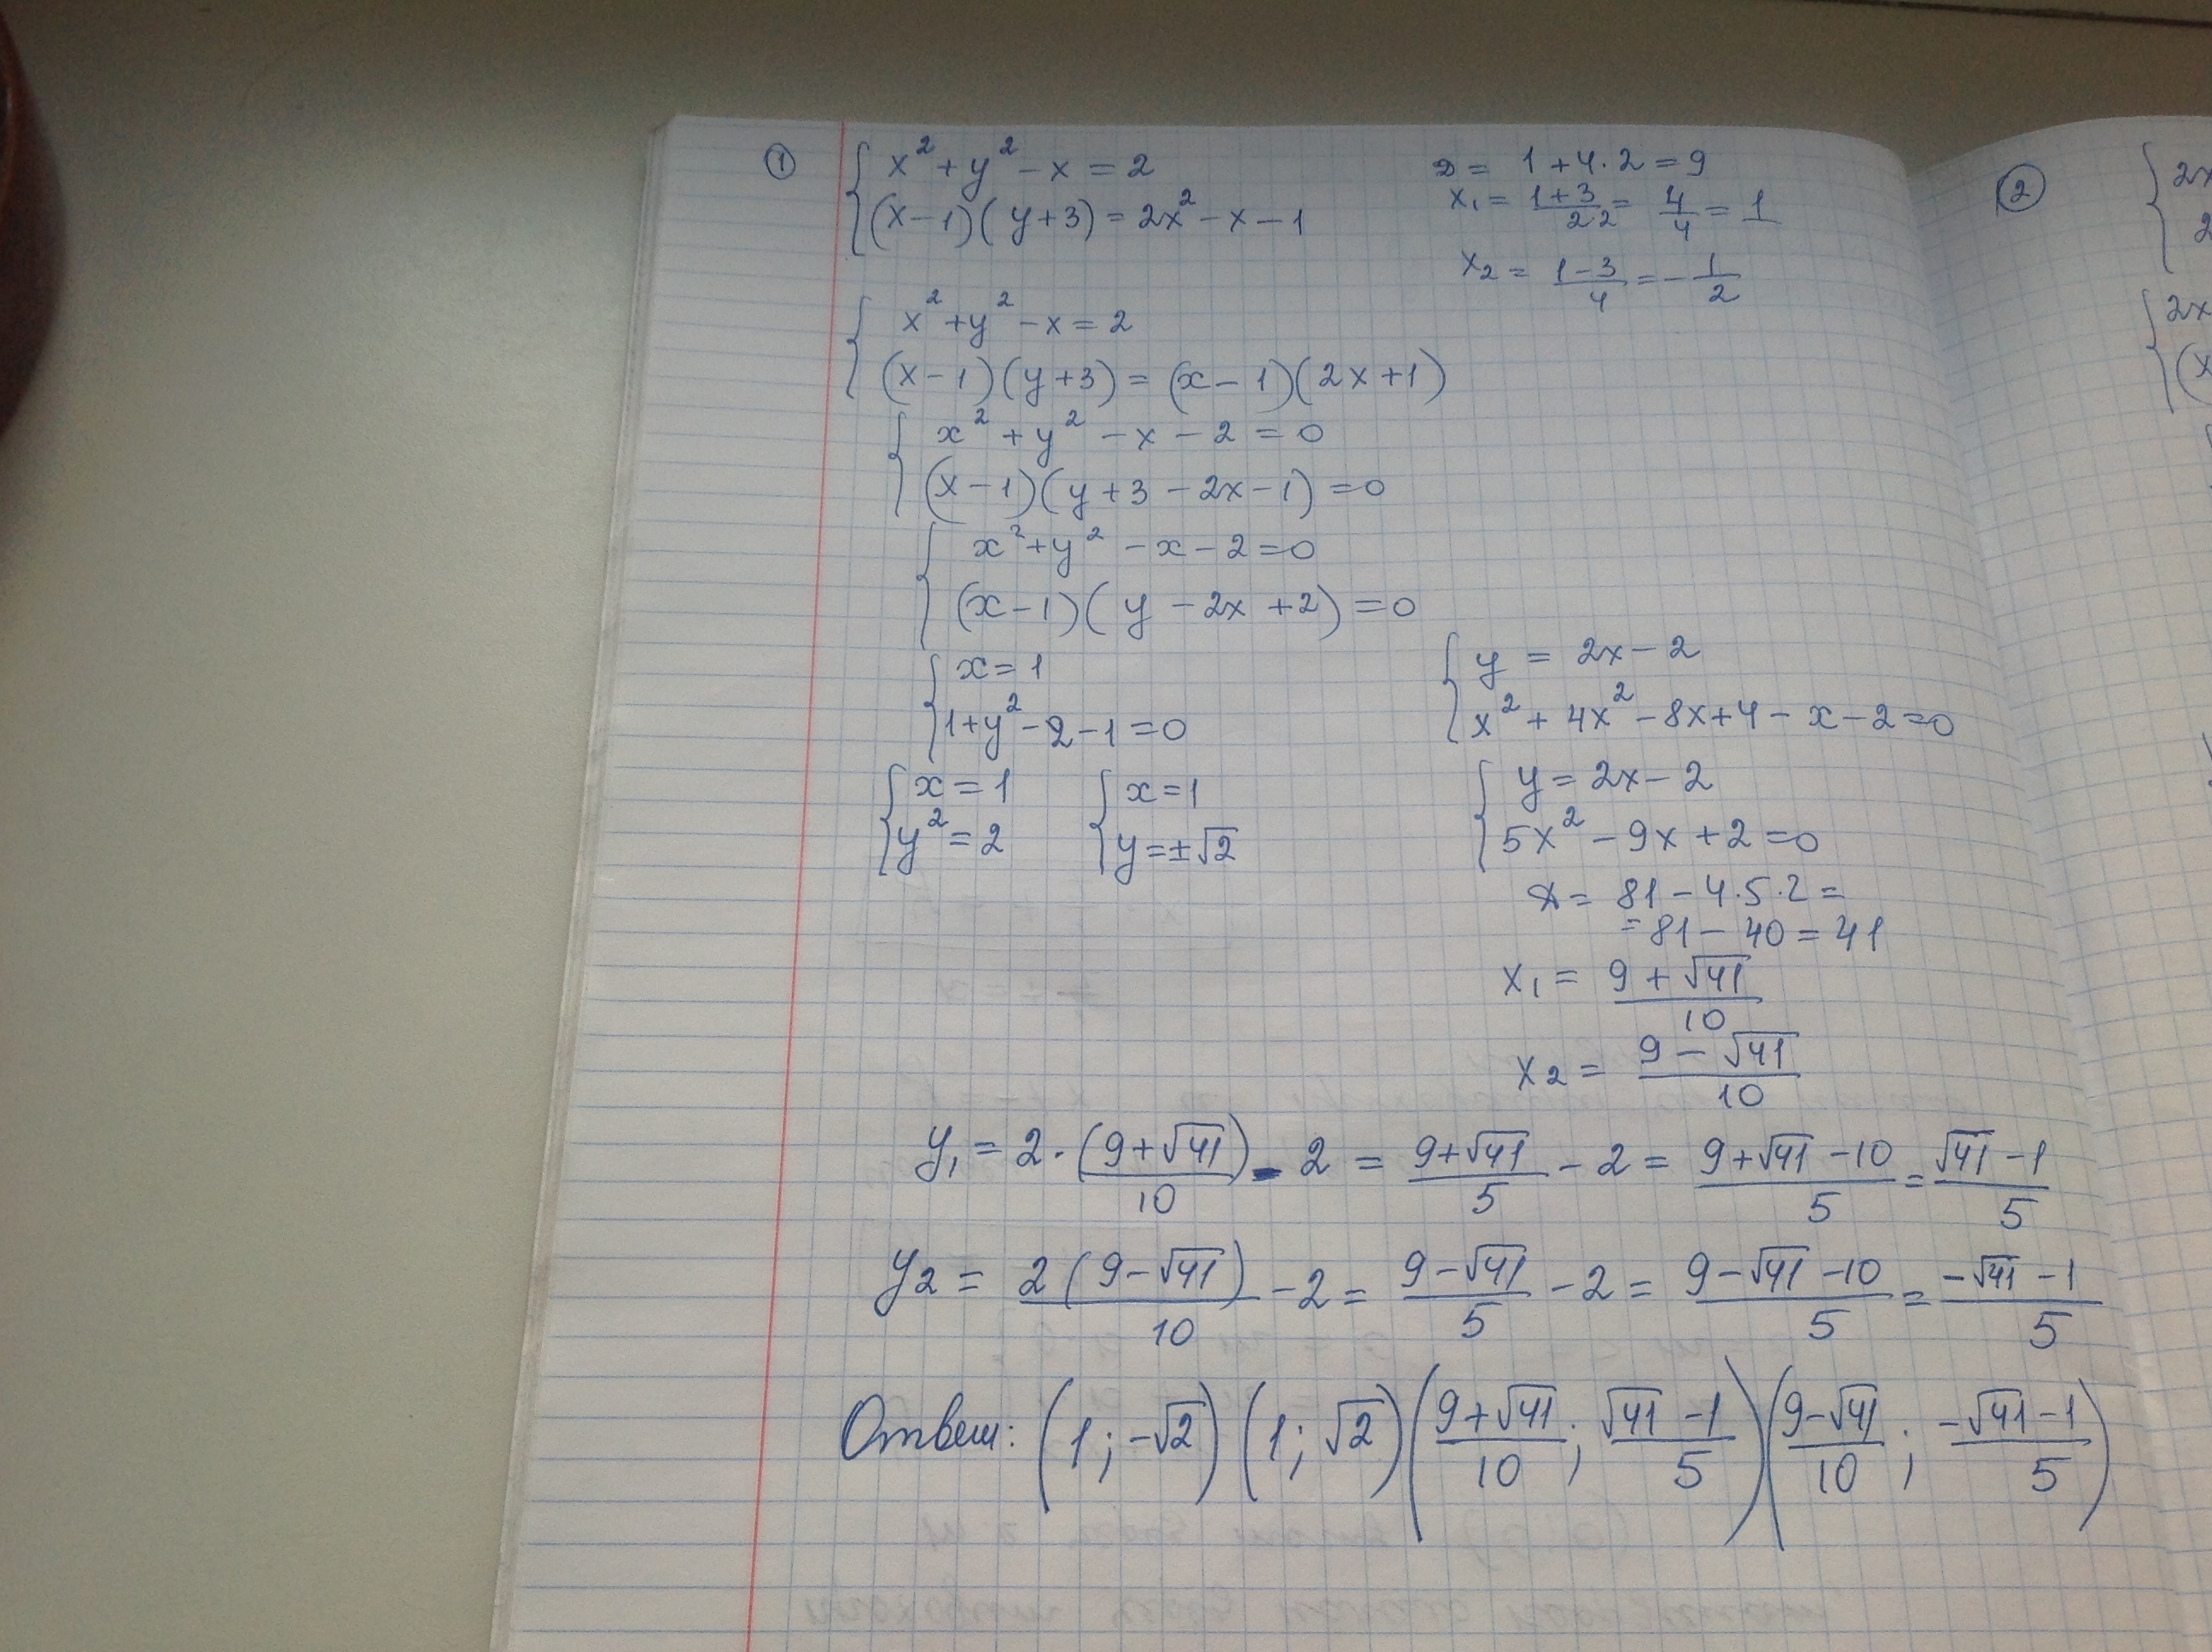 ① { x² + y² - x = 2
(x-1)(y+3) = 2x² - x - 1
D = 1+4·2 = 9
x₁ = (1+3)/22 = 4/4 = 1
x₂ = (1-3)/4 = -1/2
{ x² + y² - x = 2
(x-1)(y+3) = (x-1)(2x+1)
{ x² + y² - x - 2 = 0
(x-1)(y+3-2x-1) = 0
{ x² + y² - x - 2 = 0
(x-1)(y-2x+2) = 0
{ x = 1
1+y²-2-1 = 0
{ x = 1
y² = 2
{ x = 1
y = ±√2
{ y = 2x - 2
x² + 4x² - 8x + 4 - x - 2 = 0
{ y = 2x - 2
5x² - 9x + 2 = 0
= 81 - 4·5·2 =
= 81 - 40 = 41
x₁ = (9+√41)/10
x₂ = (9-√41)/10
y₁ = 2·(9+√41)/10 - 2 = (9+√41)/5 - 2 = (9+√41-10)/5 = (√41-1)/5
y₂ = 2(9-√41)/10 - 2 = (9-√41)/5 - 2 = (9-√41-10)/5 = (-√41-1)/5
Ответ: (1; -√2) (1; √2) ((9+√41)/10; (√41-1)/5) ((9-√41)/10; (-√41-1)/5)
②
{ 2x
2
{ 2x
(x